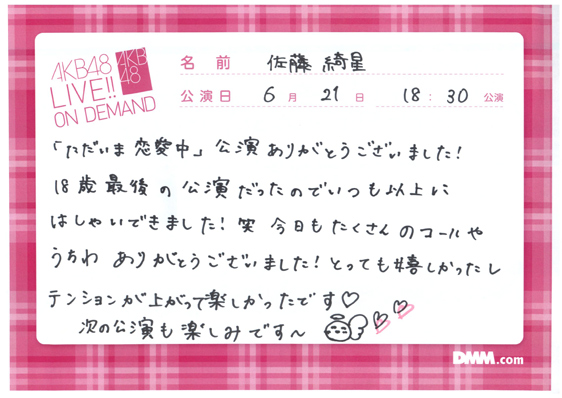 AKB48
LIVE!!
ON DEMAND
AKB
48
名前 佐藤 綺星
公演日 6月 21日 18:30 公演
「ただいま 恋愛中」公演ありがとうございました!
18歳最後の公演だったのでいつも以上に
はしゃいできました!笑 今日もたくさんのコールや
うちわ ありがとうございました!とっても嬉しかったし
テンションが上がって楽しかったです♡
次の公演も楽しみです〜
DMM.com